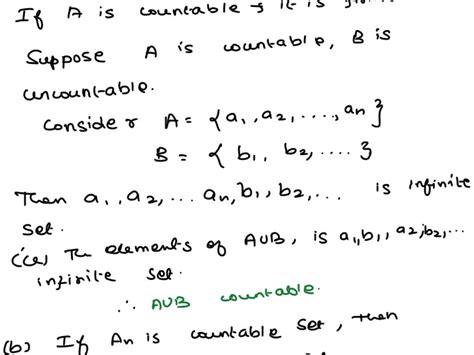 If A is countable & it is
Suppose A is countable, B is
uncountable.
Consider A = {a₁, a₂, ...., aₙ}
B = {b₁, b₂, .... }
Then a₁, a₂, ... aₙ, b₁, b₂, ... is infinite
set.
(ie) The elements of AUB, is a₁, b₁, a₂, b₂...
infinite set.
∴ AUB countable.
(b) If Aₙ is countable set, then